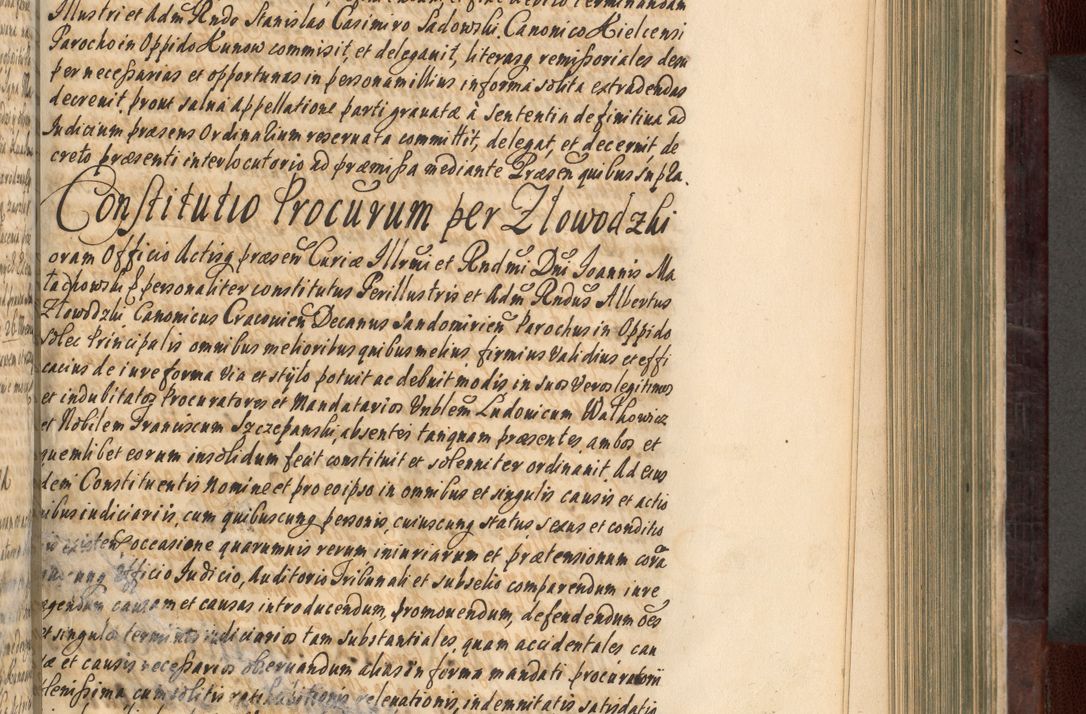 Illustri et Adm Rndo Stanislao Casimiro Sadowski Canonico Kielcensi
Parocho in Oppido Kunow commisit, et delegauit, literasq remissoriales desu
per necessarias et opportunas in personam illius in forma solita extradendas
decreuit prout salua appellatione parti grauatæ à Sententia definitiua ad
Iudicium præsens Ordinarium reseruata committit, delegat, et decernit, de
creto præsenti interlocutorio ad præmissa mediante Præsen quibus supra.
Constitutio Procurum per Zlowodzki
oram Officio Actisq præsen Curiæ Illrmi et Rndmi Dni Ioannis Ma
personaliter constitutus Perillustris et Adm Rndus Albertus
Zlowodzki Canonicus Cracouien Decanus Sandomirien Parochus in Oppido
Principalis omnibus melioribus quibus melius firmius validius et effi
cacius de iure forma via et stylo potuit ac debuit modis in suos veros legitimos
et indubitatos Procuratores et Mandatarios Vnblem Ludouicum Walkowicz
et Nobilem Franciscum Szczepanski absentes tanquam præsentes ambos et
quemlibet eorum insolidum fecit constituit et solenniter ordinauit. Ad eius
dem Constituentis Nomine et pro eo ipso in omnibus et singulis causis et actio
nibus iudiciariis, cum quibuscunq personis, cuiuscunq status sexus et conditio
existen occasione quarumuis rerum iniuriarum et prætensionum corã
Officio Iudicio, Auditorio Tribunali et subselio comparendum iure
agendum causam et causas introducendum, promouendum, defendendum oẽs
et singulos terminos iudiciarios tam substantiales, quam accidentales cau
sæ et causis necessarios obseruandum alias in forma mandati procuratorii
plenissima cum solitis rati habitionis releuationis, indemnitatis satisdatio